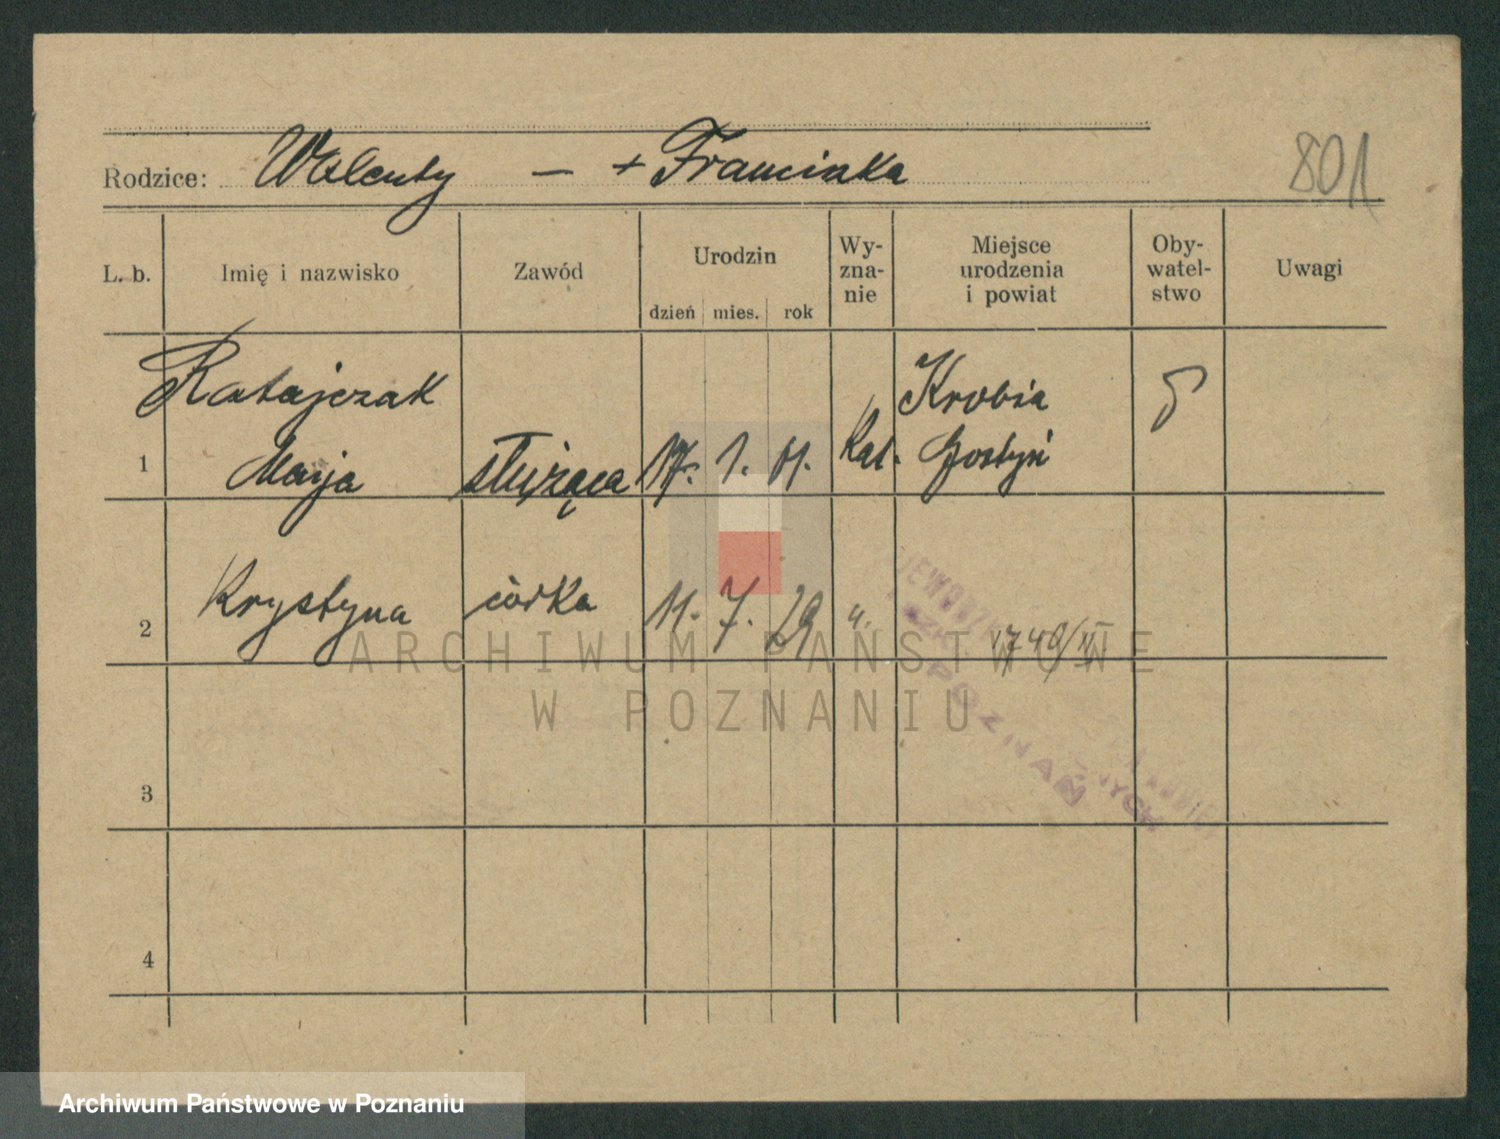 Rodzice: Walenty — + Franciszka
801
L. b. Imię i nazwisko Zawód Urodzin dzień mies. rok Wy-zna-nie Miejsce urodzenia i powiat Oby-watel-stwo Uwagi
Ratajczak Krobia
1 Marja służąca 17. 1. 01. Kat. Gostyń
2 Krystyna córka 11. 7. 29 ".
1740/VI
POZNAŃ
3
4
ARCHIWUM PAŃSTWOWE
W POZNANIU
Archiwum Państwowe w Poznaniu